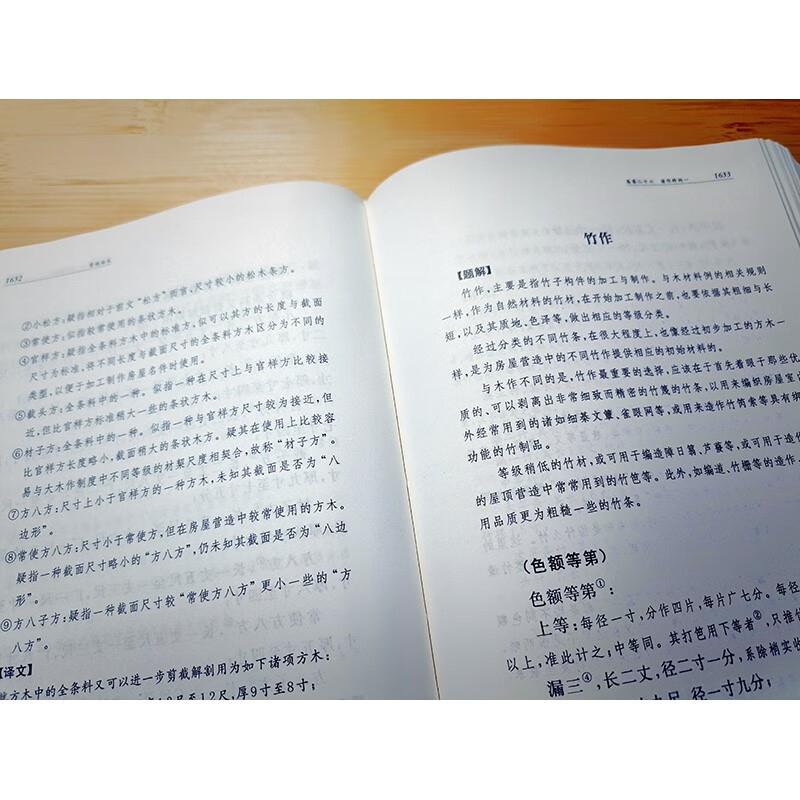 1632
营造法式
②小松方：疑指相对于前文“松方”而言，尺寸较小的松木条方。
③常使方：似指较常使用的条状方木。
④官样方：疑指全条料方木中的标准方，似可以其方的长度与截面
尺寸为标准，将不同长度与截面尺寸的全条料方木区分为不同的
类型，以便于加工制作房屋名件时使用。
⑤截头方：全条料中的一种。似指一种在尺寸上与官样方比较接
近，但比官样方标准稍大一些的条状方木。
⑥材子方：全条料中的一种。似指一种与官样方尺寸较为接近，但
比官样方长度略小，截面稍大的条状木方。疑其在使用上比较容
易与大木作制度中不同等级的材栔尺度相契合，故称“材子方”。
⑦方八方：尺寸上小于官样方的一种方木，未知其截面是否为“八
边形”。
⑧常使方八方：尺寸小于常使方，但在房屋营造中较常使用的方木。
疑指一种截面尺寸略小的“方八方”，仍未知其截面是否为“八边
形”。
⑨方八子方：疑指一种截面尺寸较“常使方八方”更小一些的“方
八方”。
【译文】
方木中的全条料又可以进一步剪截解割用为如下诸项方木：
尺至12尺，厚9寸至8寸；
卷第二十六 诸作料例一 1633
竹作
【题解】
竹作，主要是指竹子构件的加工与制作。与木材料例的相关规则
一样，作为自然材料的竹材，在开始加工制作之前，也要依据其粗细与长
短，以及其质地、色泽等，做出相应的等级分类。
经过分类的不同竹条，在很大程度上，也像经过初步加工的方木一
样，是为房屋营造中的不同竹作提供相应的初始材料的。
与木作不同的是，竹作最重要的选择，应该在于首先着眼于那些优
质的、可以剥离出非常细致而精密的竹篾的竹条，以用来编织房屋室
外经常用到的诸如细棊文簟、雀眼网等，或用来造作竹笍索等具有绑
功能的竹制品。
等级稍低的竹材，或可用于编造障日篛、芦蕟等，或可用于造作
的屋顶营造中常常用到的竹笆等。此外，如编道、竹栅等的造作
用品质更为粗糙一些的竹条。
（色额等第）
色额等第①：
上等：每径一寸，分作四片，每片广七分。每径
以上，准此计之；中等同。其打笆用下等者②，只推竹
漏三④，长二丈，径二寸一分，系除梢实收
九尺，径一寸九分；